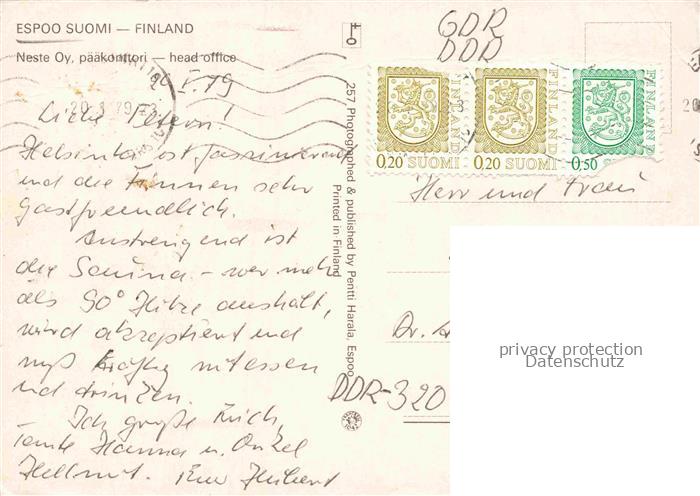 ESPOO SUOMI — FINLAND
Neste Oy, pääkonttori — head office
I. 79
20.1.79
Liebe Eltern!
Helsinki ist faszinierend
und die Finnen sehr
gastfreundlich.
Anstrengend ist
die Sauna – wer mehr
als 90° Hitze aushält,
wird akzeptiert und
muß kräftig mitessen
und trinken.
Ich grüße Euch,
Tante Hanna u. Onkel
Hellmut. Euer Hubert
257 Photographed & published by Pentti Harala, Espoo
Printed in Finland
GDR
DDR
0,20 SUOMI FINLAND
0,20 SUOMI FINLAND
0,50 FINLAND
Herr und Frau
Dr.
DDR-320
privacy protection
Datenschutz